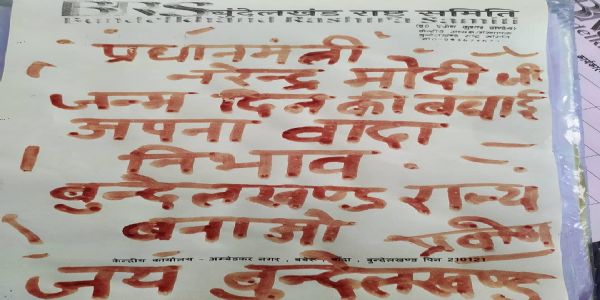 BRS बुंदेलखंड राष्ट्र समिति
Bundelkhand Rashtra Samiti
प्रधानमंत्री
नरेन्द्र मोदी जी
जन्म दिन की बधाई
अपना वादा
निभाव
बुन्देलखण्ड राज्य
बनाओ प्रवीण
केन्द्रीय कार्यालय - अम्बेडकर नगर , बबेरू , बाँदा , बुन्देलखण्ड पिन 210121
जय बुन्देलखण्ड